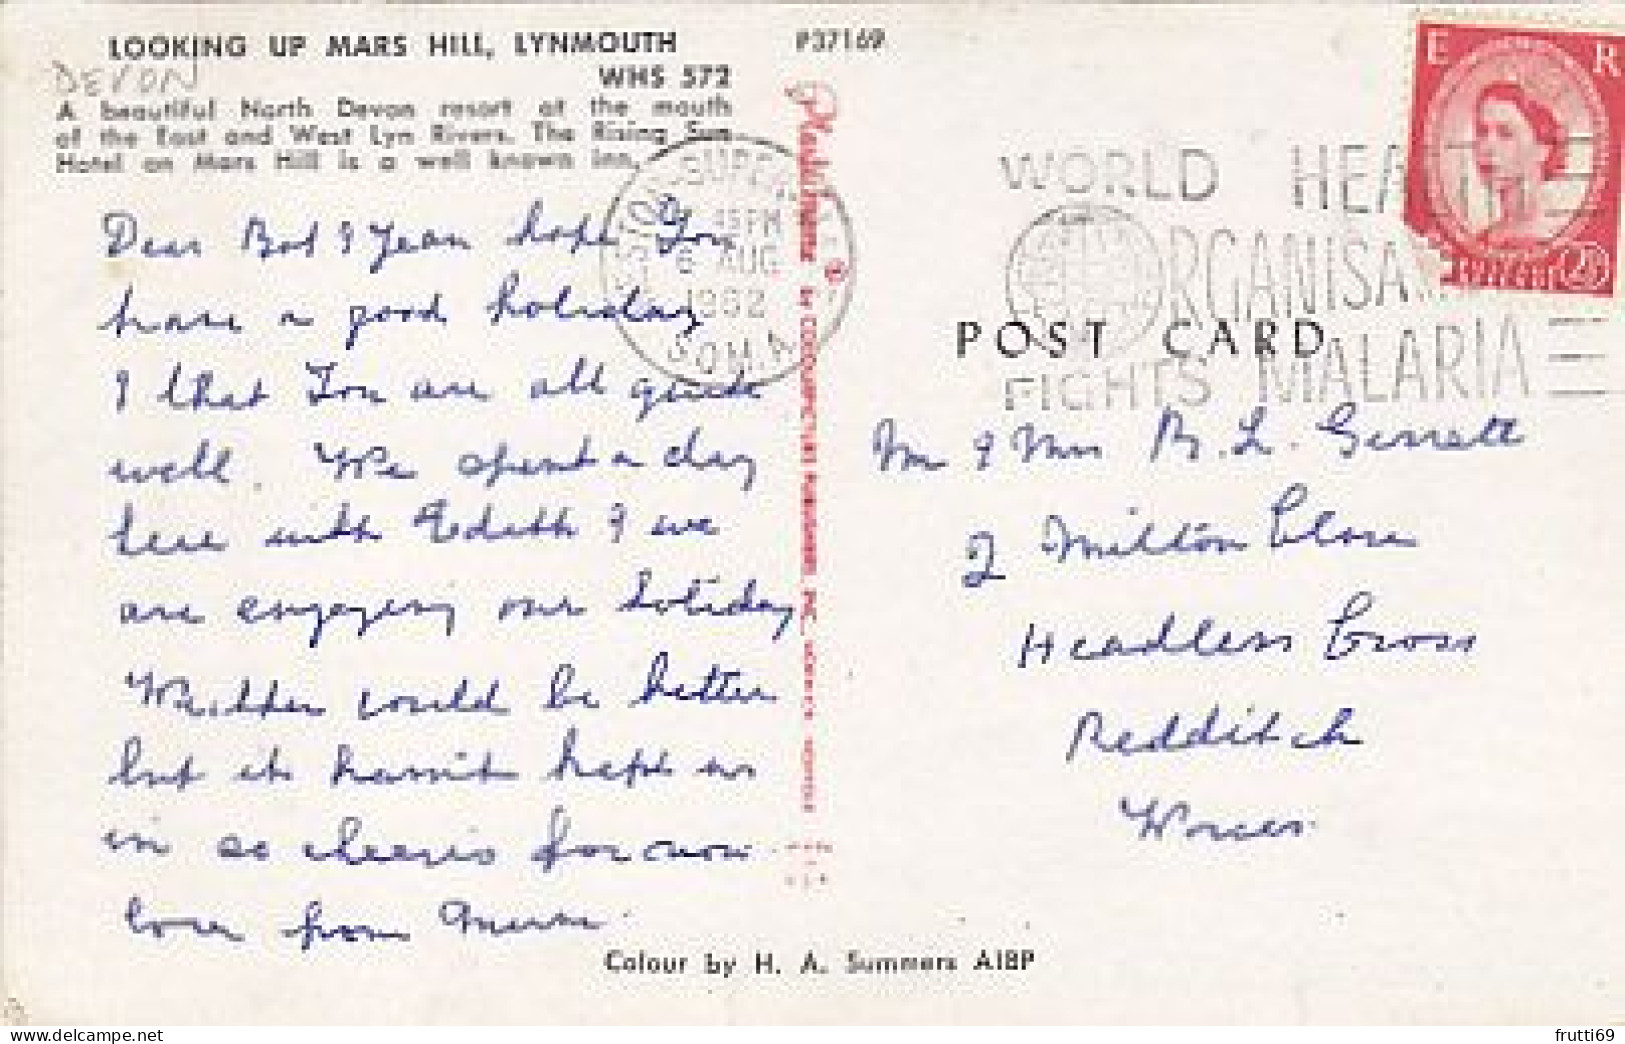 LOOKING UP MARS HILL, LYNMOUTH
WHS 572
DEVON
A beautiful North Devon resort at the mouth
of the East and West Lyn Rivers. The Rising Sun
Hotel on Mars Hill is a well known inn.
Dear Bob & Jean hope You
have a good holiday
& that You are all quite
well. We spent a day
here with Edith & we
are enjoying our holiday
Weather could be better
but it hasnit kept us
in so cheerio for now
love from Mum
Colour by H. A. Summers AIBP
P37169
Plastichrome ® by COLOURPICTURE PUBLISHERS INC.
WESTON-SUPER-MARE
45 PM
6 AUG
1962
SOM. A
WORLD HEALTH
ORGANISATION
FIGHTS MALARIA
E R
2½
POST CARD
Mr & Mrs B. L. Gerrett
2 Milton Close
Headless Cross
Redditch
Worcs.
frutti69